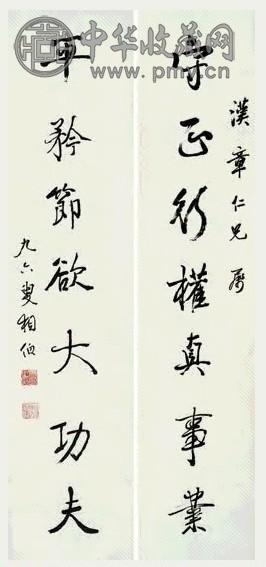 中华收藏网
www.pmyc.cn
漢章仁兄屬
守正行權真事業
平矜節欲大功夫
九六叟相伯